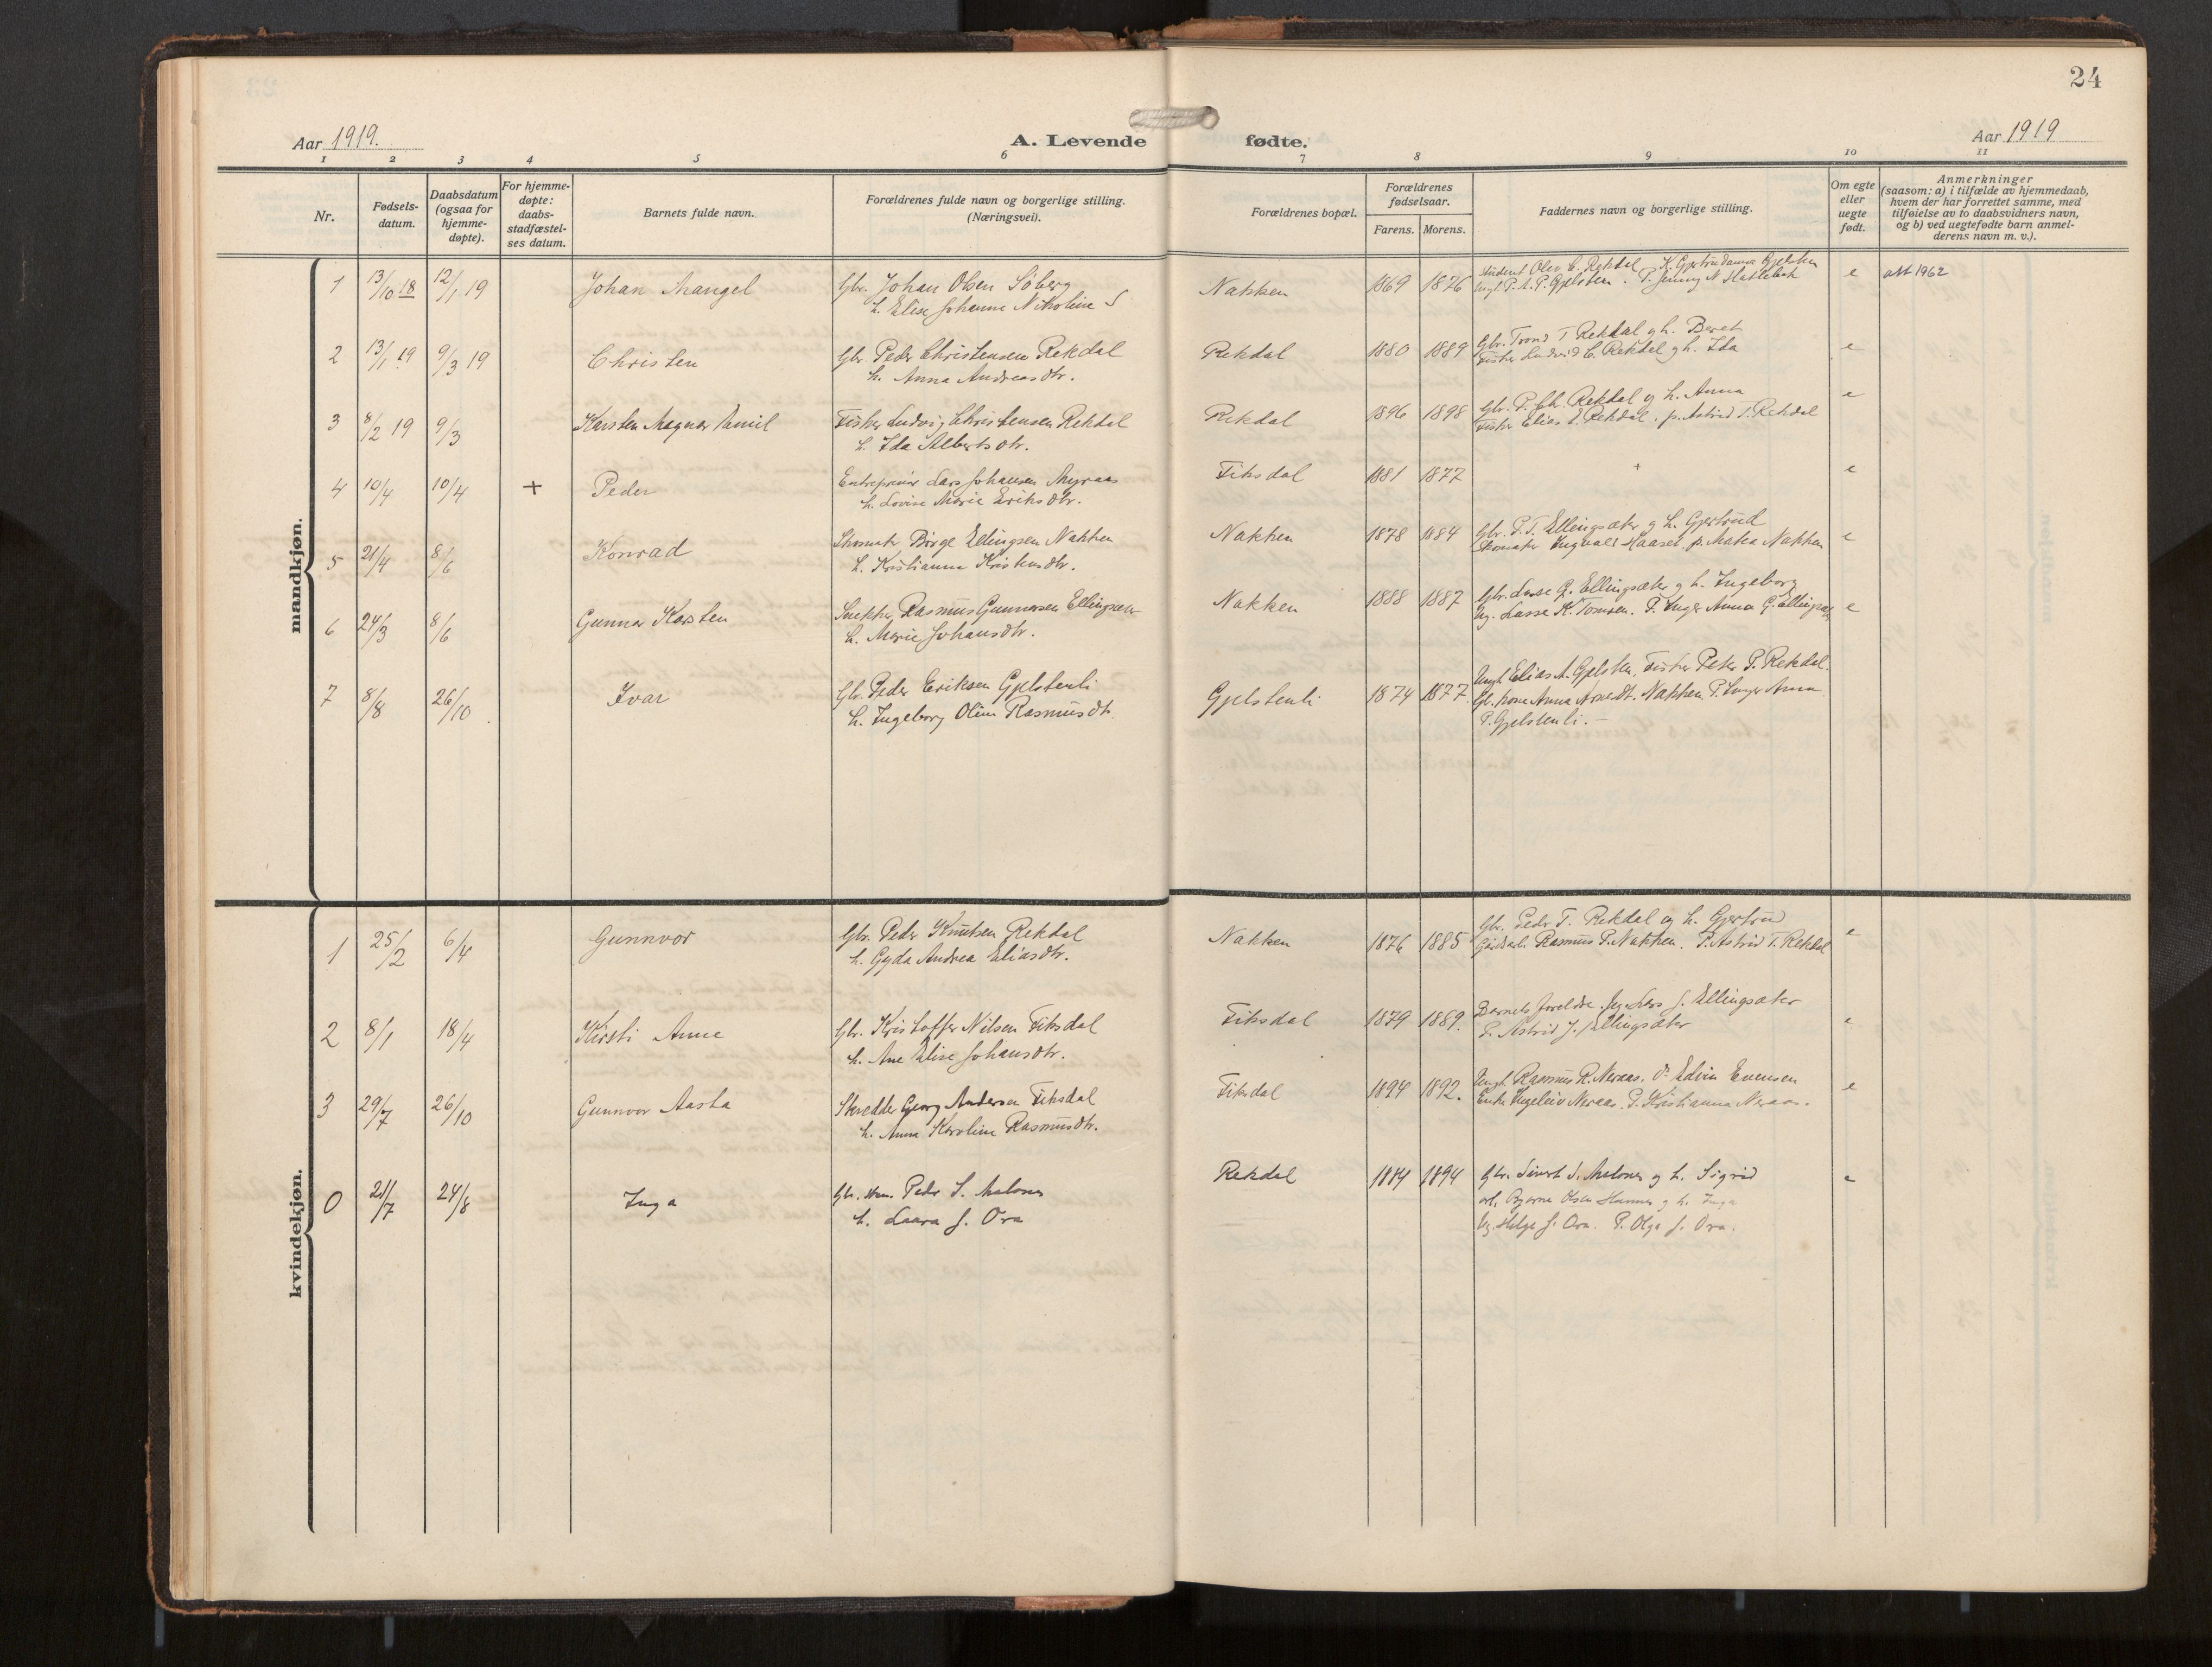 24
Aar 1919.
A. Levende fødte.
Aar 1919
1 2 3 4 5 6 7 8 9 10 11
Nr.
Fødsels-
datum.
Daabsdatum
(ogsaa for
hjemme-
døpte).
For hjemme-
døpte:
daabs-
stadfæstel-
ses datum.
Barnets fulde navn.
Forældrenes fulde navn og borgerlige stilling.
(Næringsvei).
Forældrenes bopæl.
Forældrenes
fødselsaar.
Farens. Morens.
Faddernes navn og borgerlige stilling.
Om egte
eller
uegte
født.
Anmerkninger
(saasom: a) i tilfælde av hjemmedaab,
hvem der har forrettet samme, med
tilføielse av to daabsvidners navn,
og b) ved uegtefødte barn anmel-
derens navn m. v.).
mandkjøn.
1 13/10 18 12/1 19 Johan Mangel
Gbr. Johan Olsen Söberg
h. Elise Johanne Nikoline S
Nakken 1869 1876
student Olev C. Rekdal K. Gjertrudanna Gjelsten
Ungk. P. A. P. Gjelsten. P. Jenny N Hatlebak
e att 1962
2 13/1 19 9/3 19 Christen
Gbr. Peder Christensen Rekdal
h. Anna Andreasdtr.
Rekdal 1880 1889
Gbr. Trond T Rekdal og h. Beret
Fisker Ludvid C. Rekdal og h. Ida
e
3 8/2 19 9/3 Karsten Magnar Emil
Fisker Ludvig Christensen Rekdal
h. Ida Albertsdtr.
Rekdal 1896 1898
Gbr. P. Ch. Rekdal og h. Anna
Fisker Elias E. Rekdal. p. Astrid T. Rekdal
e
4 10/4 10/4 + Peder
Entreprenør Lars Johansen Myraas
h. Lovise Marie Eriksdtr.
Fiksdal 1881 1877
+
e
5 21/4 8/6 Konrad
Skomaker Börge Ellingsen Nakken
h. Kristianna Kristensdtr.
Nakken 1878 1884
Gbr. P. T. Ellingsæter og h. Gjertrud
Skomaker Ingvald Haaset. p. Matea Nakken
e
6 24/3 8/6 Gunnar Karsten
Snekker Rasmus Gunnersen Ellingsæter
h. Marie Johansdtr.
Nakken 1888 1887
Gbr. Lasse G. Ellingsæter og h. Ingeborg
Ug. Lasse K. Tomren. P. Inger Anna G. Ellingsæ
e
7 8/8 26/10 Ivar
Gbr. Peder Eriksen Gjelstenli
h. Ingeborg Oline Rasmusdtr.
Gjelstenli 1874 1877.
Ungk. Elias A. Gjelsten, Fisker Peter P. Rekdal.
Gb. kone Anna Arnedt. Nakken P. Inger Anna
P. Gjelstenli. —
kvindekjøn.
1 25/2 6/4 Gunnvor
Gbr. Peder Knutsen Rekdal
h. Gyda Andrea Eliasdtr.
Nakken 1876 1885
Gbr. Peder T. Rekdal og h. Gjertrud
Gårdarb. Rasmus P. Nakken. P. Astrid T. Rekdal
e
2 8/1 18/4 Kirsti Anne
Gbr. Kristoffer Nilsen Fiksdal
h. Ane Elise Johansdtr.
Fiksdal 1879 1889.
Barnets foreldre. Ug. Lars J. Ellingsæter
P. Astrid J. Ellingsæter
e
3 29/7 26/10 Gunnvor Aasta
Skredder Georg Andersen Fiksdal
h. Anna Karoline Rasmusdtr.
Fiksdal 1894 1892.
Ungk. Rasmus R. Neraas. do Edvin Evensen
Enke Ingeleiv Neraas. P. Kristianna Neraas.
e
0 21/7 24/8 Inga
Gbr. Peder S. Malones
h. Laura J. Ora
Rekdal 1884 1894
Gbr. Sivert S. Malones og h. Sigrid
arb. Bjarne Olsen og h. Inga
Ug. Helge J. Ora. P. Olga J. Ora.
e